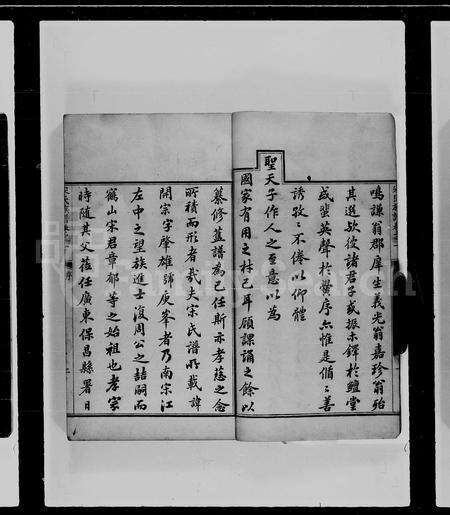 鳴謙翁郡庠生義光翁嘉珍翁殆
其選歟彼諸君子或振木鐸於鱣堂
或蜚英聲於黌序亦惟是循循善
誘孜孜不倦以仰體
聖天子作人之至意以為
國家有用之材已耳顧課誦之餘以
纂修蓝譜為己任斯亦孝慈之念
所積而形者歟夫宋氏譜所載諱
開宗字肇雄號庾峯者乃南宋江
左中之望族進士溪周公之喆嗣而
鶴山宋君章郁等之始祖也孝宗
時隨其父蒞任廣東保昌縣署日